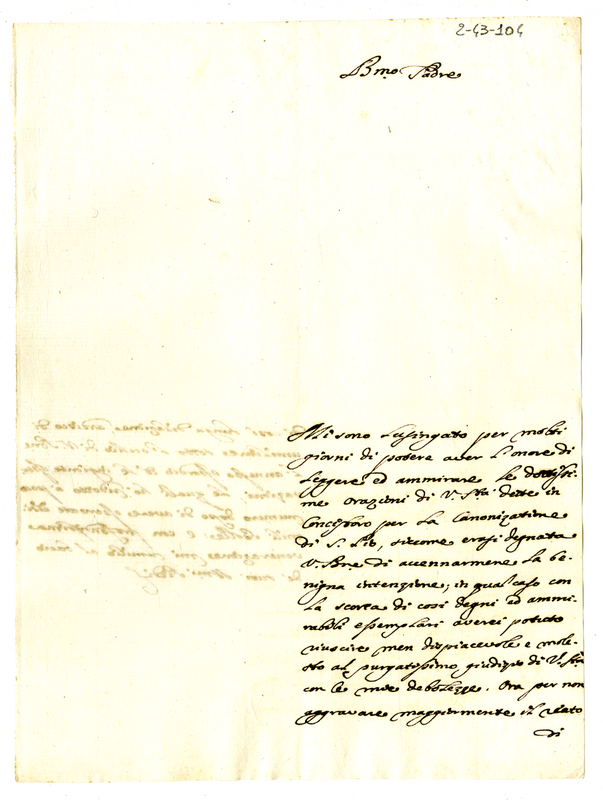 2-43-104
Bmo. Padre
Mi sono lusingato per molti
giorni di potere aver l'onore di
leggere ed ammirare le dottissi-
me orazioni di V. Stà dette in
Concistoro per la Canonizatione
di S. Pio, siccome erasi degnata
V. Bne. di avennarmene la be-
nigna intenzione; in qual caso con
la scorta di così degni ed ammi-
rabili essemplari averei potuto
riuscire men dispiacevole e mole-
sto al purgatissimo giudizio di V. Stà
con le mie debolezze. Ora per non
aggravare maggiormente il reato
di